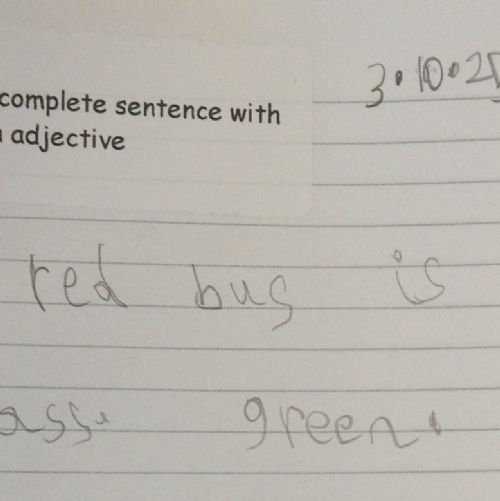 complete sentence with
adjective
3.10.2
red bus is
ass. green.